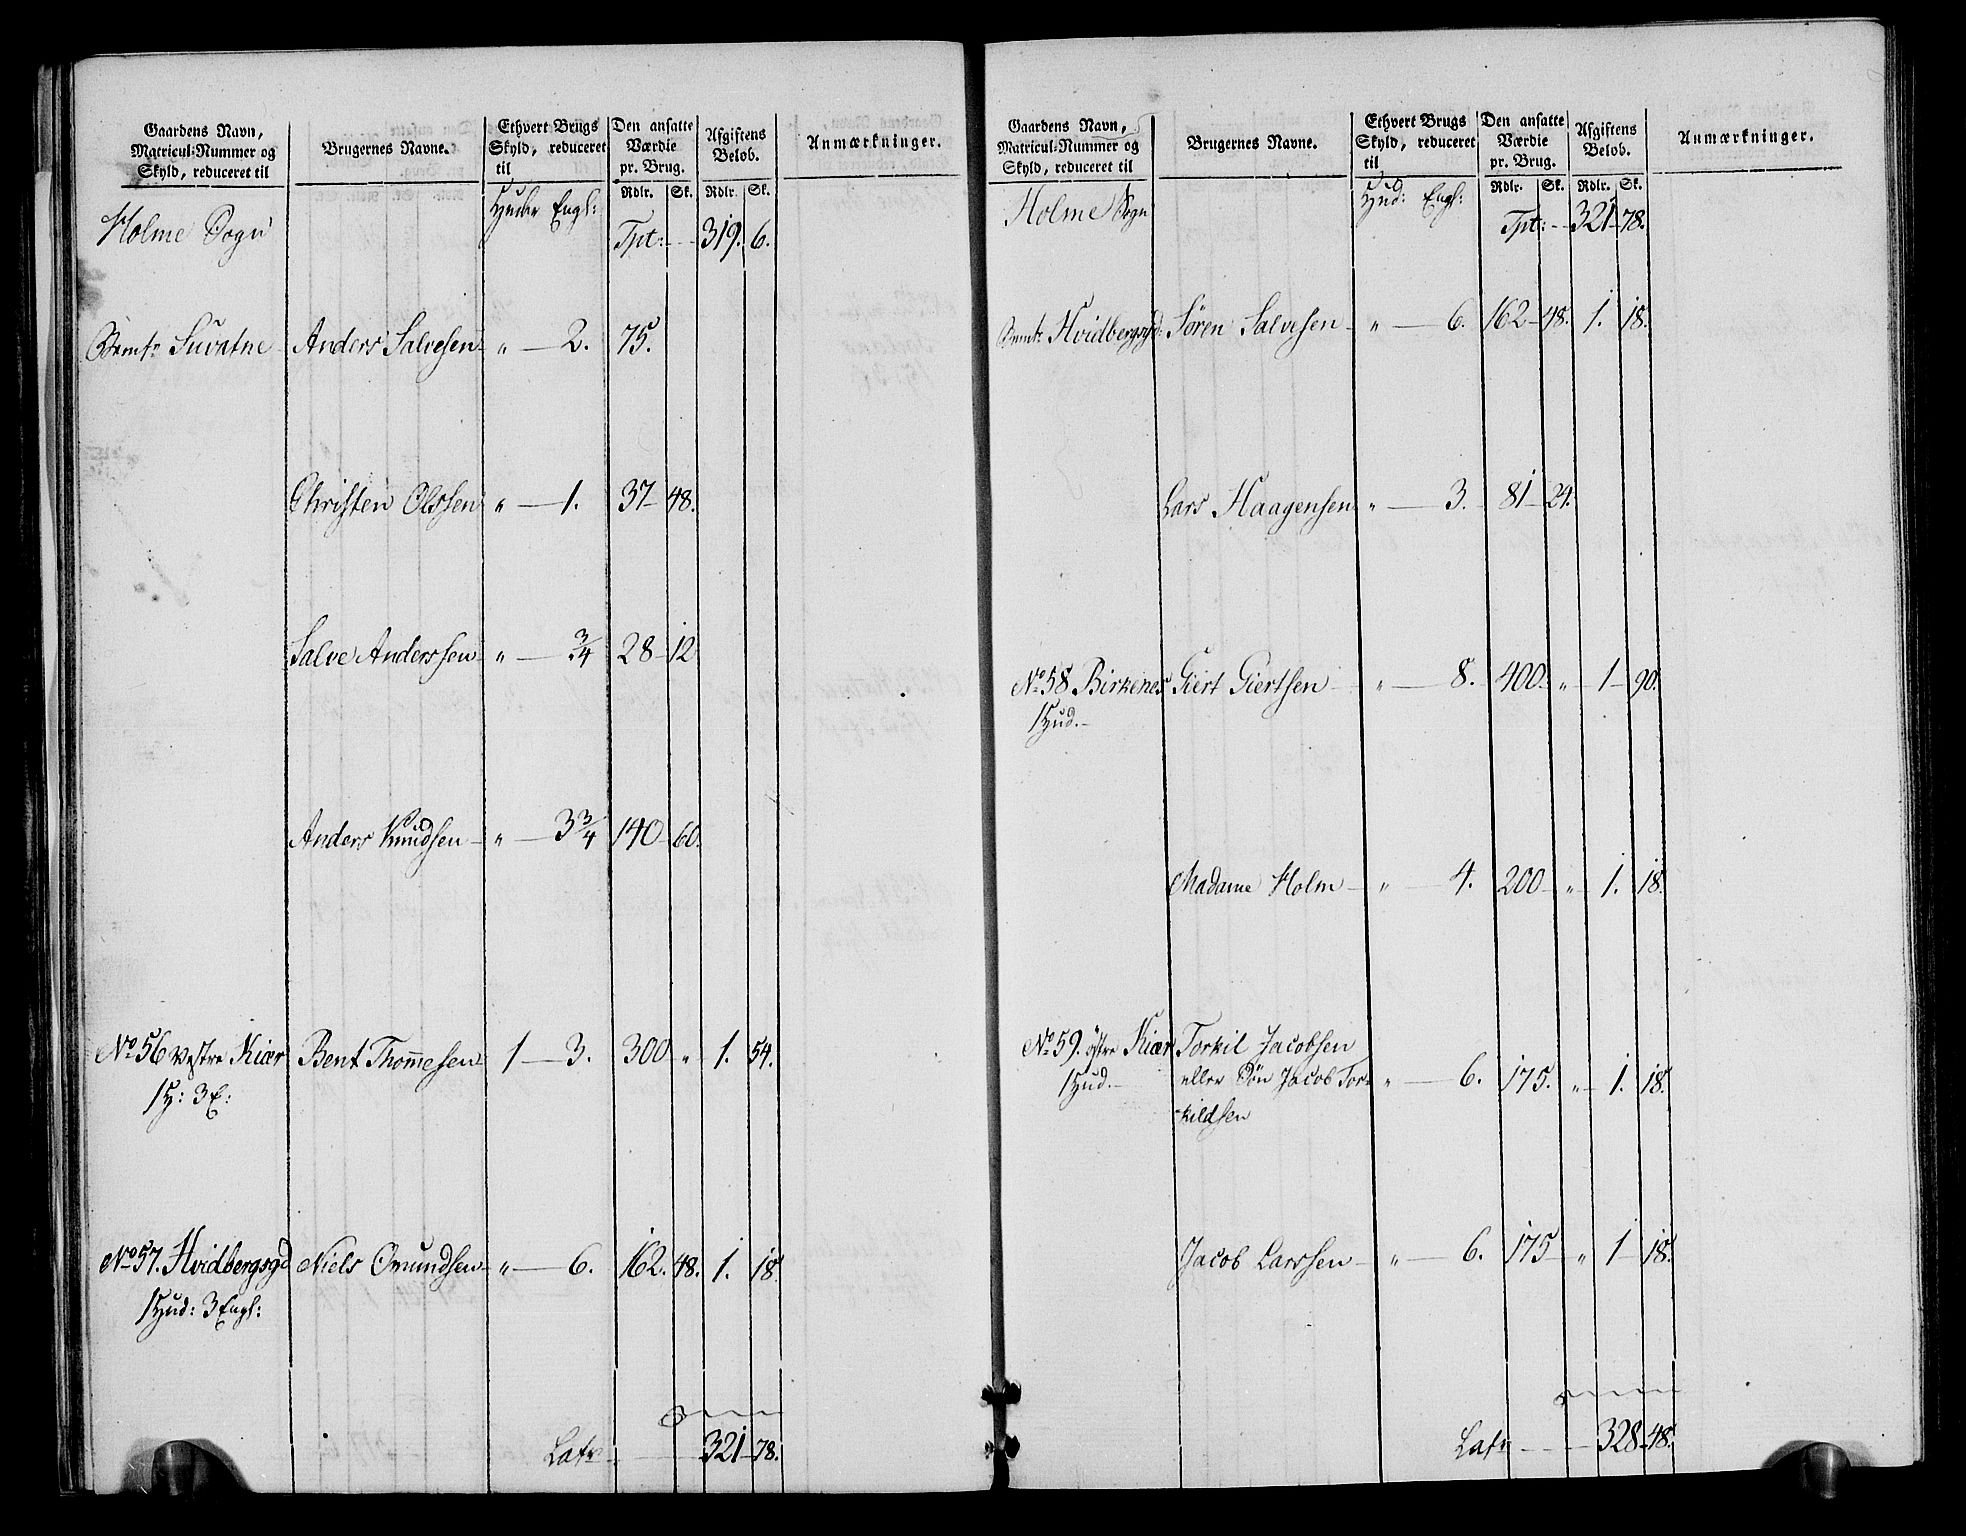 Gaardens Navn, Matricul-Nummer og Skyld, reduceret til
Brugernes Navne.
Ethvert Brugs Skyld, reduceret til
Den ansatte Værdie pr. Brug.
Afgiftens Beløb.
Anmærkninger.
Rdlr. Sk. Rdlr. Sk.
Holme Sogn Huder Engl: Tpt: 319. 6.
Bemte Suvatne Anders Salvesen " 2. 75.
Christen Olssen " 1. 37 48.
Salve Anderssen " 3/4 28 12
Anders Knudsen " 3 3/4 140 60.
No 56 Vestre Kiær Bent Thom̄esen 1 3. 300 " 1. 54.
1 H: 3 E:
No 57. Hvidbergsgd Niels Omundsen " 6. 162. 48. 1. 18
1 Hud: 3 Engl:
Latr 321 78.
Gaardens Navn, Matricul-Nummer og Skyld, reduceret til
Brugernes Navne.
Ethvert Brugs Skyld, reduceret til
Den ansatte Værdie pr. Brug.
Afgiftens Beløb.
Anmærkninger.
Rdlr. Sk. Rdlr. Sk.
Holme Sogn Hud: Engl: Tpt: 321 78.
Bemte Hvidbergsgd: Søren Salvesen " 6. 162 48. 1. 18.
Lars Haagensen " 3. 81 24.
No 58 Birkenes Giert Giertsen " 8. 400. " 1 90.
1 Hud.
Madame Holm " 4. 200 " 1. 18.
No 59. östre Kiær Torkil Jacobsen
1 Hud. eller Sön Jacob Tor- " 6. 175. " 1. 18.
kildsen
Jacob Larssen " 6. 175 " 1 18.
Latr 328 48.